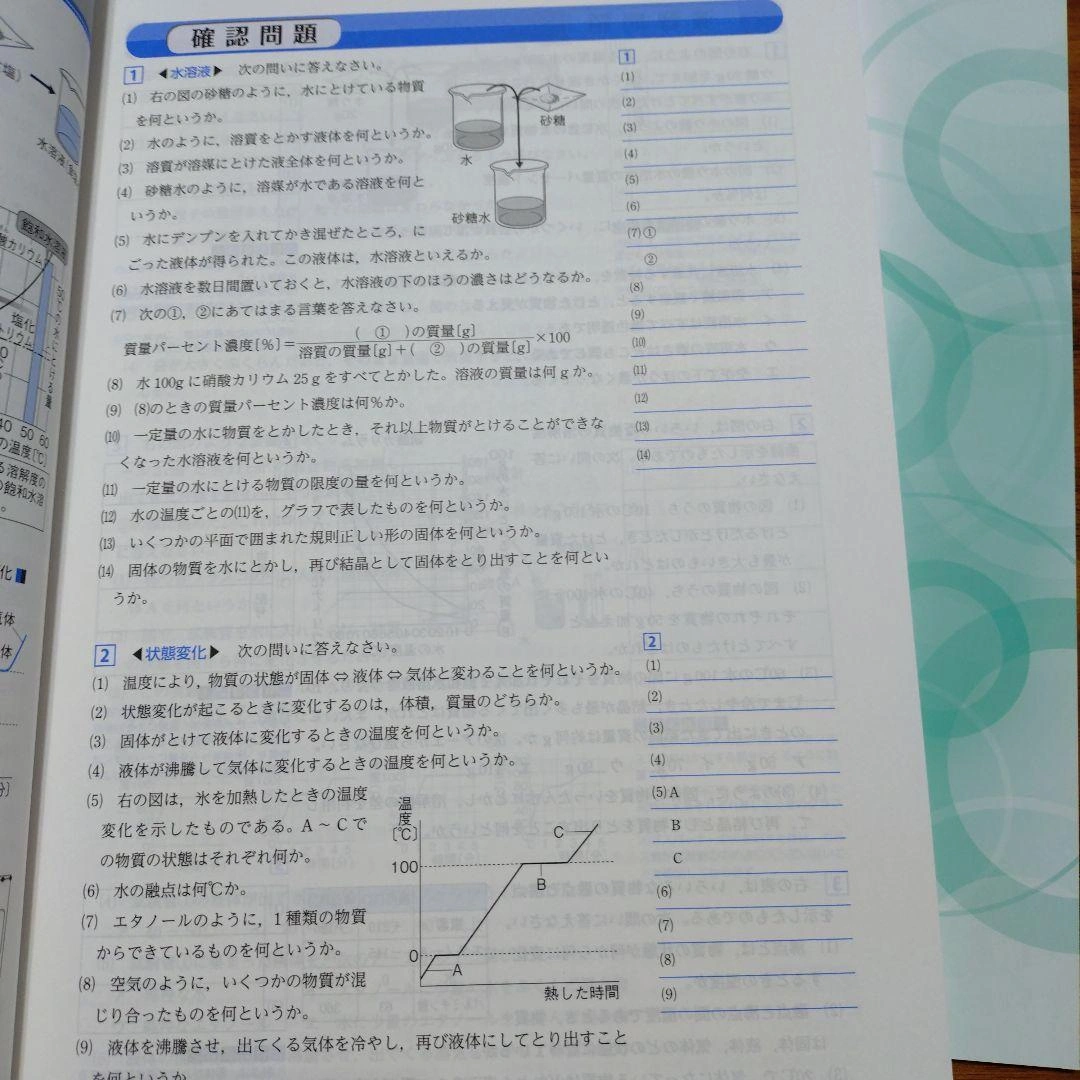 確認問題
1 ◀水溶液▶ 次の問いに答えなさい。
(1) 右の図の砂糖のように，水にとけている物質
を何というか。
(2) 水のように，溶質をとかす液体を何というか。
(3) 溶質が溶媒にとけた液全体を何というか。
(4) 砂糖水のように，溶媒が水である溶液を何と
いうか。
(5) 水にデンプンを入れてかき混ぜたところ，に
ごった液体が得られた。この液体は，水溶液といえるか。
(6) 水溶液を数日間置いておくと，水溶液の下のほうの濃さはどうなるか。
(7) 次の①，②にあてはまる言葉を答えなさい。
質量パーセント濃度[%]=
( ① )の質量[g]
溶質の質量[g]+( ② )の質量[g]
×100
(8) 水100gに硝酸カリウム25gをすべてとかした。溶液の質量は何gか。
(9) (8)のときの質量パーセント濃度は何%か。
(10) 一定量の水に物質をとかしたとき，それ以上物質がとけることができな
くなった水溶液を何というか。
(11) 一定量の水にとける物質の限度の量を何というか。
(12) 水の温度ごとの(11)を，グラフで表したものを何というか。
(13) いくつかの平面で囲まれた規則正しい形の固体を何というか。
(14) 固体の物質を水にとかし，再び結晶として固体をとり出すことを何とい
うか。
水
砂糖
砂糖水
1
(1)
(2)
(3)
(4)
(5)
(6)
(7)①
②
(8)
(9)
(10)
(11)
(12)
(13)
(14)
2 ◀状態変化▶ 次の問いに答えなさい。
(1) 温度により，物質の状態が固体⇔液体⇔気体と変わることを何というか。
(2) 状態変化が起こるときに変化するのは，体積，質量のどちらか。
(3) 固体がとけて液体に変化するときの温度を何というか。
(4) 液体が沸騰して気体に変化するときの温度を何というか。
(5) 右の図は，氷を加熱したときの温度
変化を示したものである。A～Cで
の物質の状態はそれぞれ何か。
(6) 水の融点は何℃か。
(7) エタノールのように，1種類の物質
からできているものを何というか。
(8) 空気のように，いくつかの物質が混
じり合ったものを何というか。
(9) 液体を沸騰させ，出てくる気体を冷やし，再び液体にしてとり出すこと
を何というか
温度
[℃]
100
0
A
B
C
熱した時間
2
(1)
(2)
(3)
(4)
(5)A
B
C
(6)
(7)
(8)
(9)
飽和水溶液
酸カリウム
塩化
トリウム
50℃の水にとける量
40 50 60
の温度[℃]
る溶解度の
の飽和水溶
化
気体
体
分)